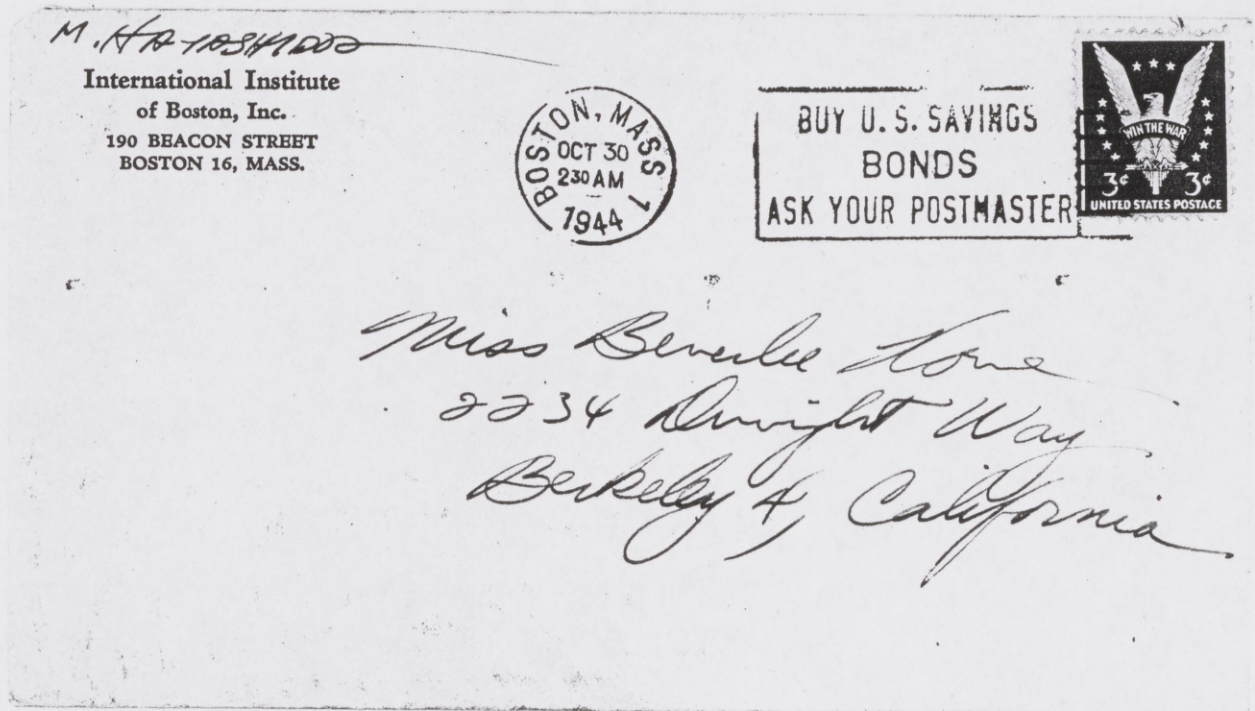 M.
International Institute
of Boston, Inc.
190 BEACON STREET
BOSTON 16, MASS.
BOSTON, MASS 1
OCT 30
2 30 AM
1944
BUY U.S. SAVINGS
BONDS
ASK YOUR POSTMASTER
WIN THE WAR
3¢ 3¢
UNITED STATES POSTAGE
Miss Beverlee
2234 Dwight Way
Berkeley 4, California